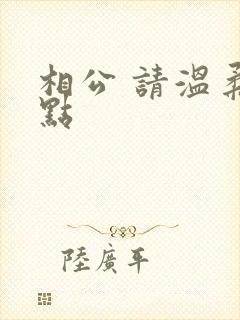 相公 請溫柔
點
陸廣平